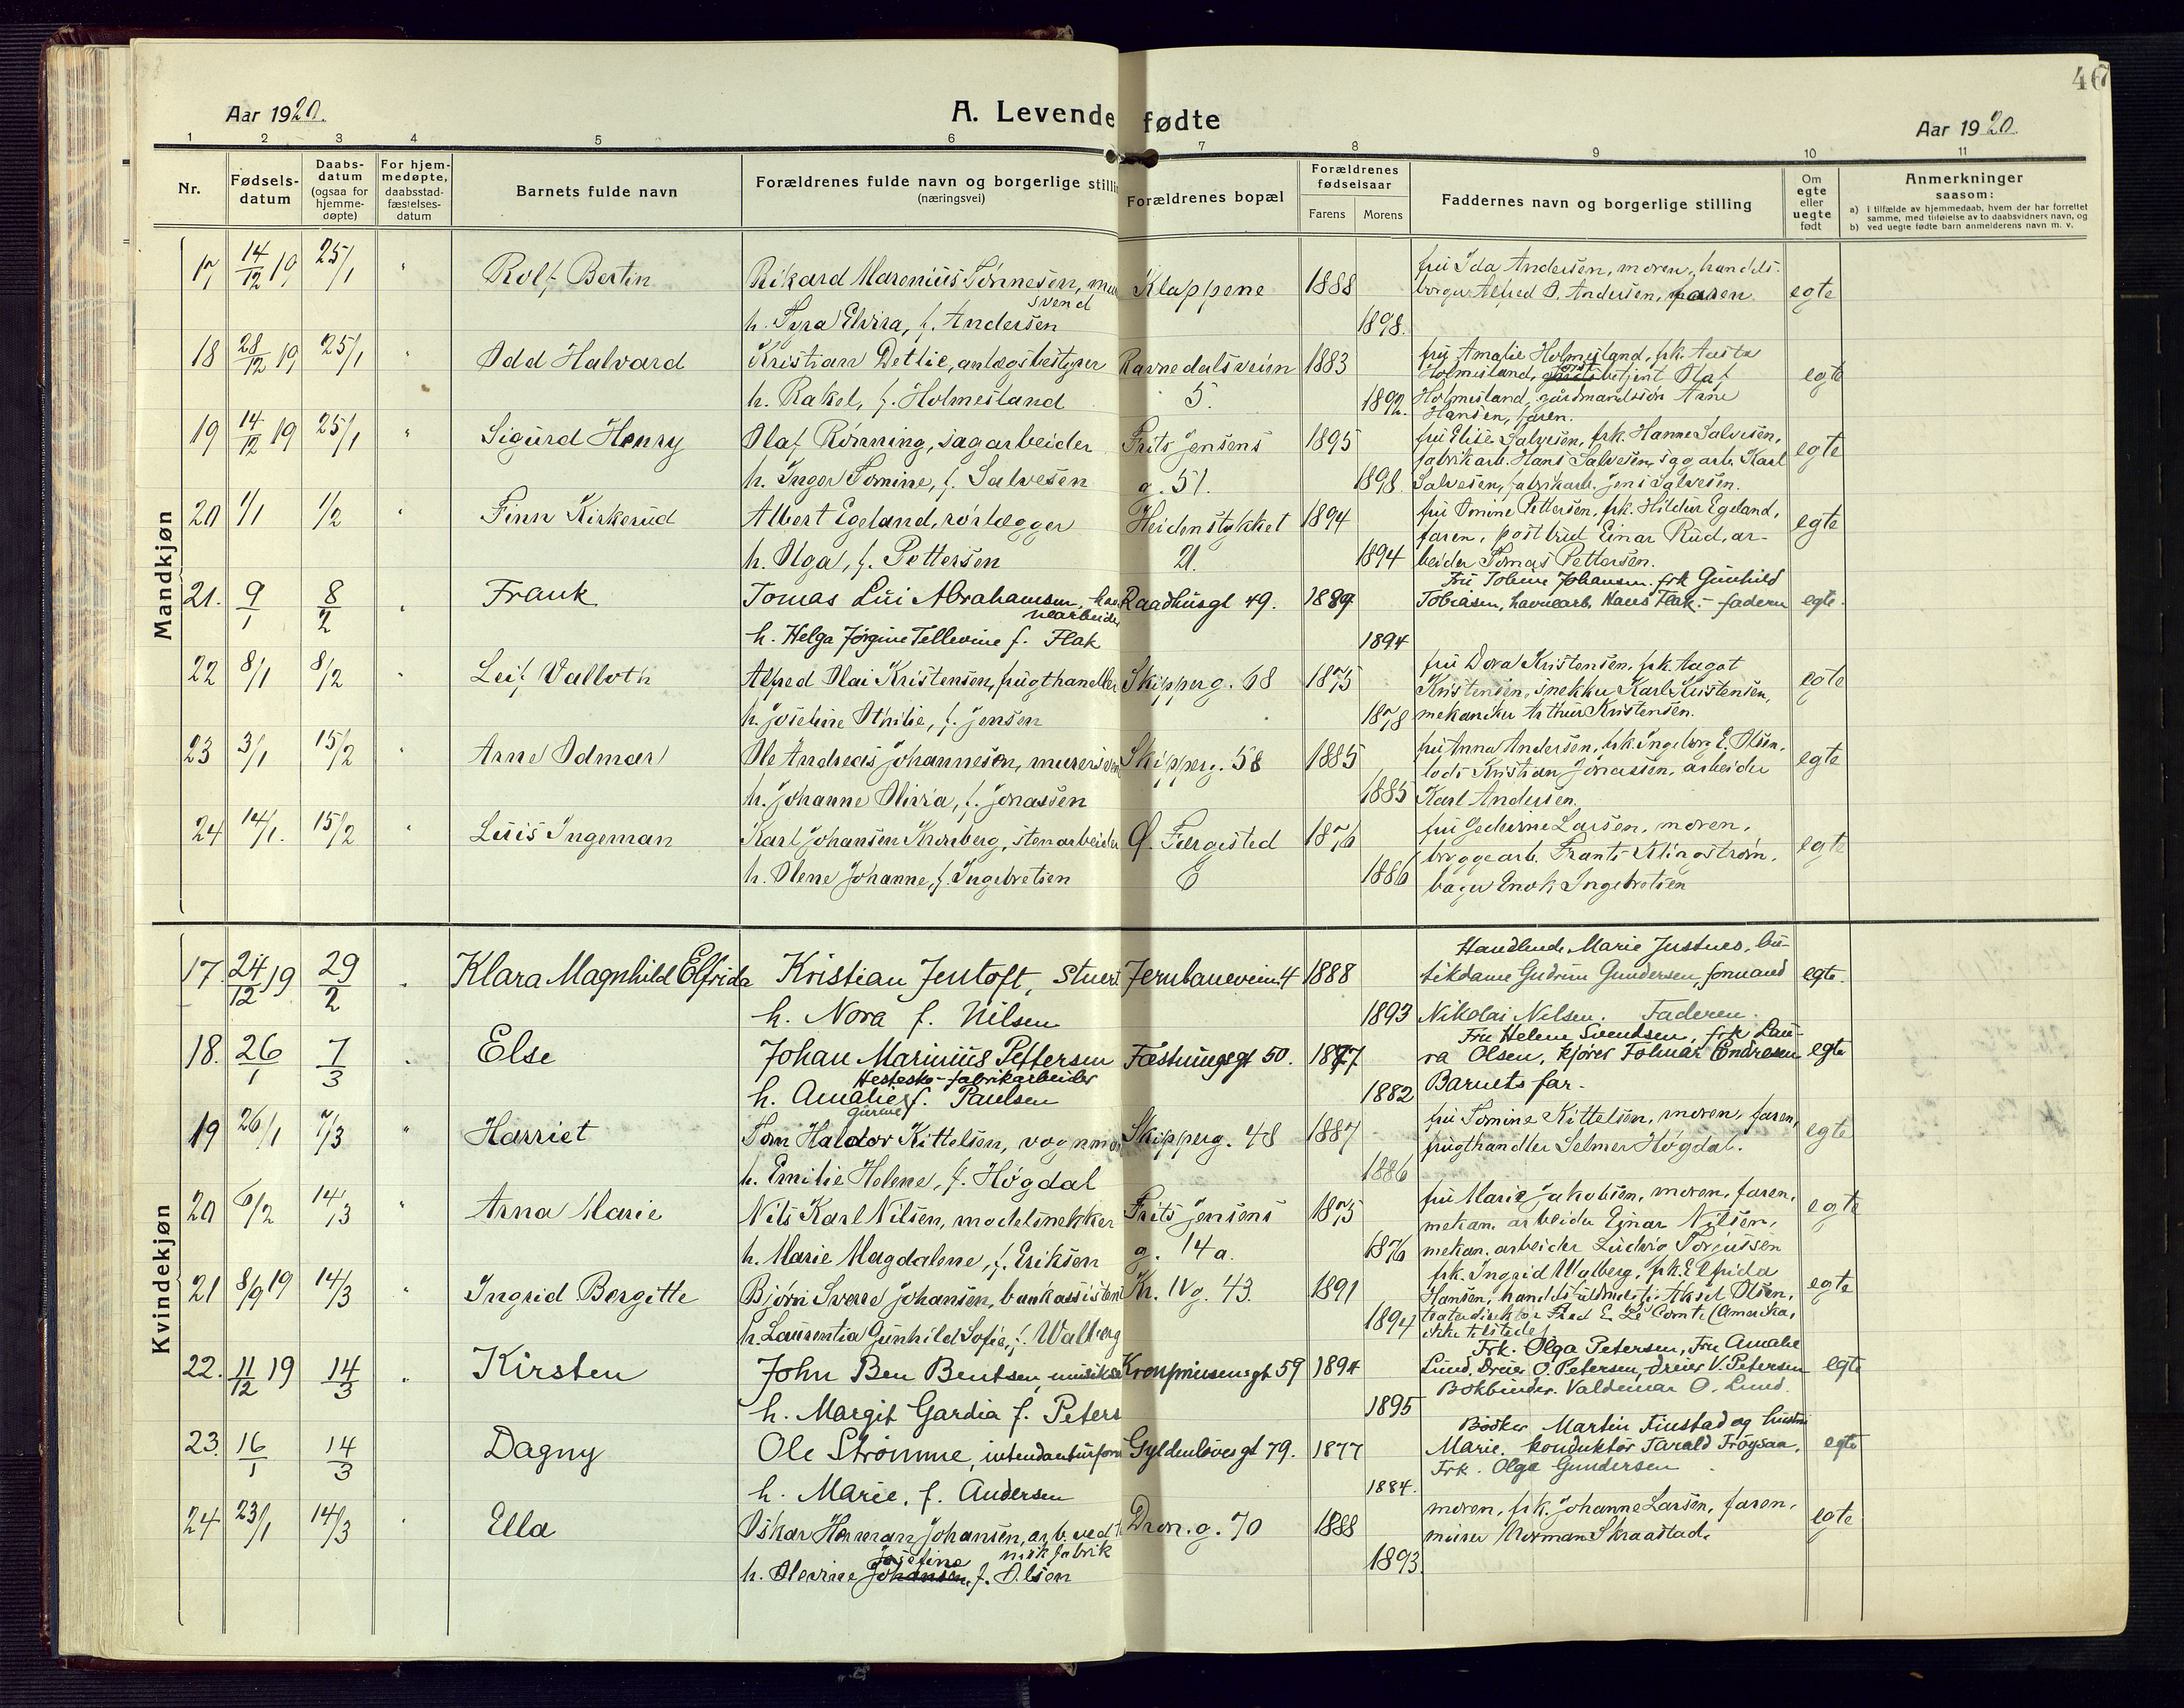 46
Aar 1920.
A. Levende fødte
Aar 1920.
1 2 3 4 5 6 7 8 9 10 11
Nr.
Fødsels-
datum
Daabs-
datum
(ogsaa for
hjemme-
døpte)
For hjem-
medøpte,
daabsstad-
fæstelses-
datum
Barnets fulde navn
Forældrenes fulde navn og borgerlige stilli
(næringsvei)
Forældrenes bopæl
Forældrenes
fødselsaar
Farens Morens
Faddernes navn og borgerlige stilling
Om
egte
eller
uegte
født
Anmerkninger
saasom:
a) i tilfælde av hjemmedaab, hvem der har forrettet
samme, med tilføielse av to daabsvidners navn, og
b) ved uegte fødte barn anmelderens navn m. v.
Mandkjøn
17 14/12 19 25/1 " Rolf Bertin Rikard Marenius Tønnesen, mu Klappene 1888 fru Ida Andersen, moren, handels-
svend borger Alfred O. Andersen, faren egte
h. Tyra Elvira, f. Andersen 1898.
18 28/12 19 25/1 " Odd Halvard Kristian Detlie, anlægsbestyrer Ravnedalsveien 1883 fru Amalie Holmesland, frk. Aasta
Holmesland, betjent Olaf egte
h. Rakel, f. Holmesland 5. 1892. Holmesland, gaardmandssøn Arne
Hansen, faren.
19 14/12 19 25/1 " Sigurd Henry Olaf Rønning, sagarbeider Frits Jensens 1895 fru Elise Salvesen, frk. Hanne Salvesen,
fabrikarb. Hans Salvesen, sagarb. Karl egte
h. Inger Tomine, f. Salvesen g. 51. 1898. Salvesen, fabrikarb. Jens Salvesen.
20 1/1 1/2 " Finn Kirkerud Albert Egeland, rørlægger Heidenstykket 1894 fru Tomine Pettersen, frk. Hildur Egeland,
faren, postbud Einar Rud, ar- egte
h. Olga, f. Pettersen 21. 1894 beider Tomas Pettersen.
21. 9/1 8/2 " Frank Tomas Lui Abrahamsen, hav Raadhusgt 49. 1889 Fru Toline Johansen. frk Gunhild
nearbeider Tobiasen, havnearb. Hans Flak. - faderen egte.
h. Helga Jørgine Tellevine f. Flak 1894
22 8/1 8/2 " Leif Valloth Alfred Olai Kristensen, frugthandler Skipperg. 68 1875 fru Dora Kristensen, frk. Aagot
Kristensen, snekker Karl Kristensen, egte
h. Josefine Othilie, f. Jensen 1878 mekaniker Arthur Kristensen.
23 3/1 15/2 " Arne Odmar Ole Andreas Johannesen, murersven Skipperg. 58 1885 fru Anna Andersen, frk. Ingeborg E. Olsen,
lods Kristian Jonassen, arbeider egte
h. Johanne Olivia, f. Jonassen 1885 Karl Andersen.
24 14/1. 15/2 " Luis Ingeman Karl Johansen Kronberg, stenarbeider Ø. Færgested 1876 fru Larsen, moren,
bryggearb. Frants Klingstrøm, egte
h. Olene Johanne, f. Ingebretsen 6 1886 bager Enok Ingebretsen
Kvindekjøn
17. 24/12 19 29/2 " Klara Magnhild Elfrida Kristian Jentoft, Stuer Jernbaneveien 4 1888 Handlende Marie Justnes, bu-
tikdame Gudrun Gundersen, formand egte.
h. Nora f. Nilsen 1893 Nikolai Nilsen. Faderen.
18. 26/1 7/3 " Else Johan Marinius Pettersen Fæstningsgt 50. 1877 Fru Helene Svendsen, frk Lau-
Hestesko-fabrikarbeider ra Olsen, kjører Tolmar Endresen egte
h. Amalie f. Paulsen 1882 Barnets far.
19 26/1 7/3 " Harriet Tom Haldor Kittelsen, vognman Skipperg. 48 1887 fru Tomine Kittelsen, moren, faren,
frugthandler Selmer Høgdal. egte
h. Emilie Helene, f. Høgdal 1886
20 6/2 14/3 " Anna Marie Nils Karl Nilsen, modelsnekker Frits Jensens 1875 fru Marie Jakobsen, moren, faren,
mekan. arbeider Einar Nilsen, egte
h. Marie Magdalene, f. Eriksen g. 14 a. 1876 mekan. arbeider Ludvig Torjussen
21 8/9 19 14/3 " Ingrid Borgitte Bjørn Sverre Johansen, bankassistent Kr. IV g. 43. 1891 frk. Ingrid Walberg, frk. Elfrida
Hansen, Aksel Olsen, egte
h. Laurentia Gunhild Sofie, f. Walberg 1894 teaterdirektør Fred E Le Comte (Amerika,
ikke tilstede)
22. 11/12 19 14/3 " Kirsten John Ben Bentsen, musiker Kronprinsensgt 59 1894 Frk. Olga Petersen, Fru Amalie
Lund, Dreier O. Petersen, dreier V. Petersen egte
h. Margit Gardia f. Peters 1895 Bokbinder. Valdemar O. Lund.
23. 16/1 14/3 Dagny Ole Strømme, intendanturforv Gyldenløvesgt 79. 1877 Bødker Martin Finstad og hustru
Marie. konduktør Tarald Frøysaa, egte
h. Marie, f. Andersen 1884. Frk. Olga Gundersen
24 23/1 14/3 " Ella Oskar Herman Johansen, arb. ved Dron. g. 70 1888 moren, frk. Johanne Larsen, faren,
Josefine fabrik murer Norman Skraastad. egte
h. Olevine Johansen, f. Olsen 1893.